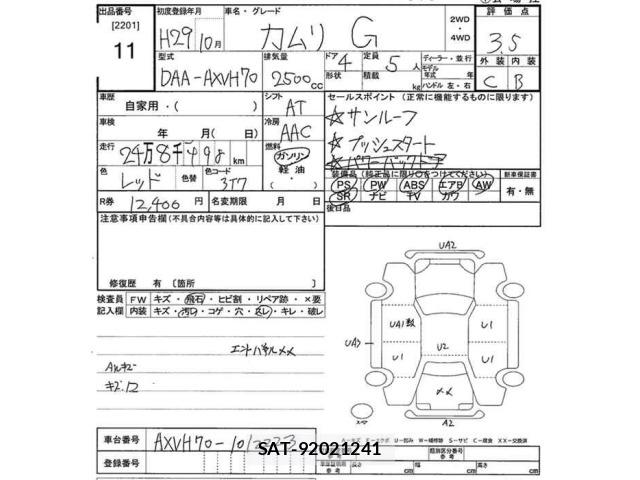 出品番号
[2201]
11
初度登録年月
H29 10月
車名・グレード
カムリ G
2WD
・
4WD
評価点
3.5
外装 内装
C B
型式
DAA-AXVH70
排気量
2500cc
ドア 4
形状
定員 5人
積載 kg
ディーラー・並行
モデル
年式 年
ハンドル 左・右
車歴
自家用・( )
シフト
AT
セールスポイント (正常に機能するものに限ります)
☆サンルーフ
☆プッシュスタート
☆パワーバックドア
車検
年 月( 日)
冷房
AAC
走行
km
燃料
ガソリン
軽油
・( )
色
レッド
色替
色コード
3T7
装備品 (純正品に限り○をつけてください)
PS PW ABS エアB AW
SR ナビ TV カワ
新車保証書
有・無
R券
12,400 円
名変期限 月 日
後日品
注意事項申告欄(不具合内容等は具体的に記入して下さい)
修復歴 有 〔箇所 〕
検査員
記入欄
FW キズ・飛石・ヒビ割・リペア跡・×要
内装 キズ・汚れ・コゲ・穴・スレ・キレ・破レ
UA2
UA3
U1
U1
U2
U1
A2
車台番号
AXVH70-10
登録番号
SAT-92021241